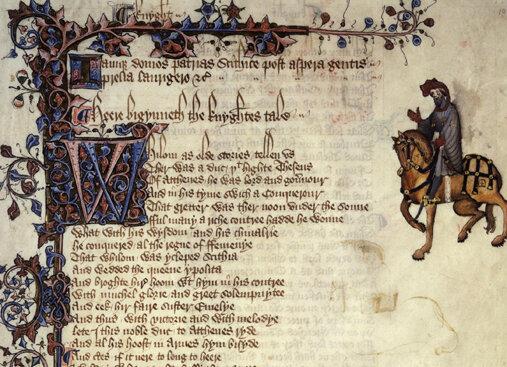 Knyght
Iamque domos patrias Scithice post aspera gentis
prelia laurigero &c
Heere bigynneth the knyghtes tale
Whilom as olde stories tellen vs
Ther was a duc þt highte Theseus
Of Atthenes he was lord and gouernour
And in his tyme swich a Conquerour
That gretter was ther noon vnder the sonne
Ful many a riche contree hadde he wonne
What with his wysdom and his chiualrie
he conquered al the regne of ffemenye
That whilom was ycleped Scithia
And wedded the queene ypolita
And broghte hir hoom wt hym in his contree
With muchel glorie and greet solempnytee
And eek hir faire suster Emelye
And thus with victorie and with melodye
Lete I this noble duc to Atthenes ryde
And al his hoost in Armes hym bisyde
And certes if it nere to long to heere